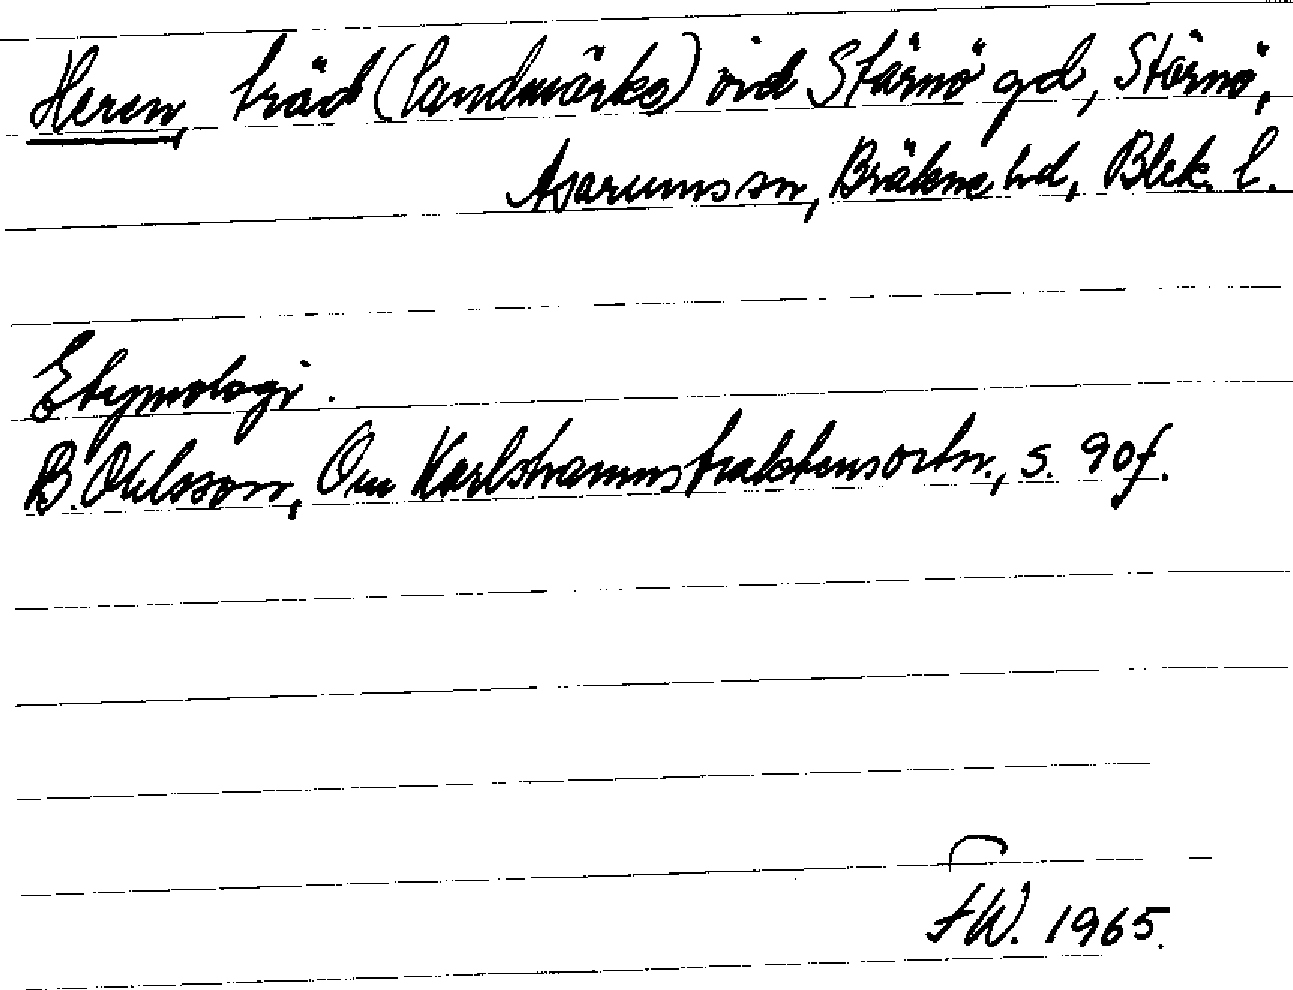 Herrn, träd (landmärke) vid Stärnö gd, Stärnö,
Asarums sn, Bräkne hd, Blek. l.
Etymologi.
B. Ohlsson, Om Karlshamnstraktens ortn., s. 90 f.
FW. 1965.